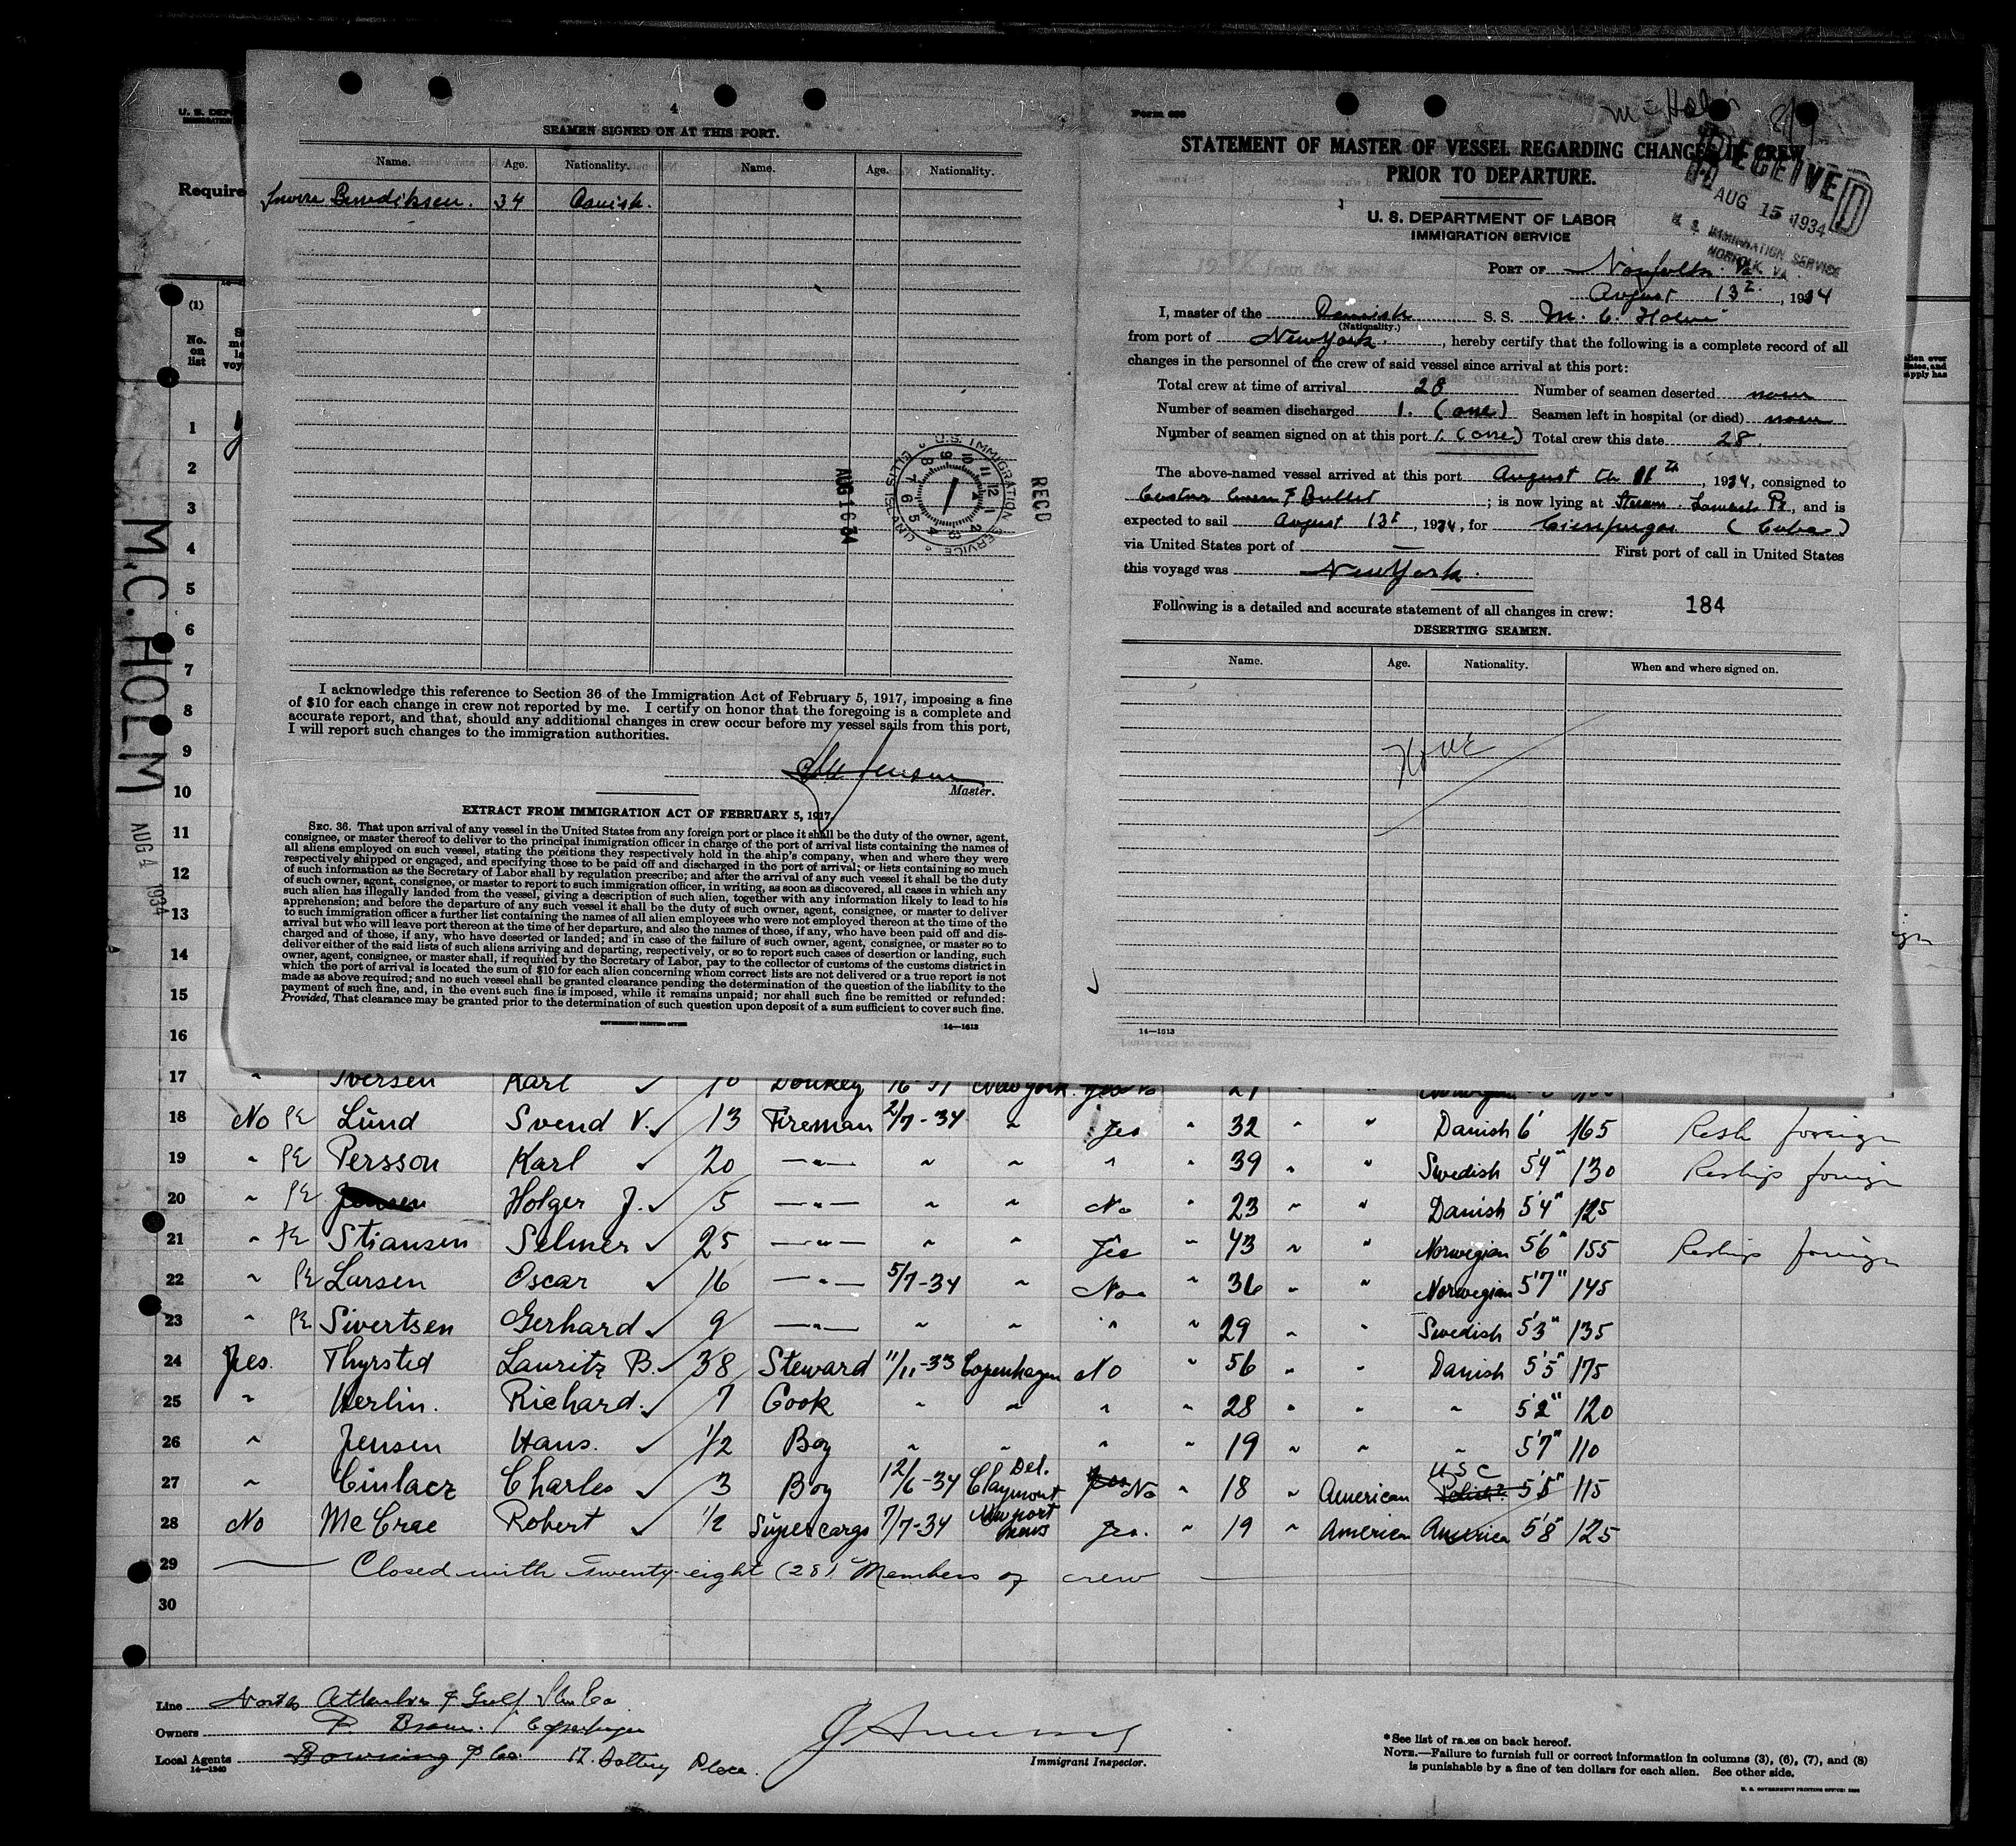 4
SEAMEN SIGNED ON AT THIS PORT.
Name. Age. Nationality. Name. Age. Nationality.
Bendiksen. 34 Danish.
I acknowledge this reference to Section 36 of the Immigration Act of February 5, 1917, imposing a fine
of $10 for each change in crew not reported by me. I certify on honor that the foregoing is a complete and
accurate report, and that, should any additional changes in crew occur before my vessel sails from this port,
I will report such changes to the immigration authorities.
Master.
EXTRACT FROM IMMIGRATION ACT OF FEBRUARY 5, 1917.
SEC. 36. That upon arrival of any vessel in the United States from any foreign port or place it shall be the duty of the owner, agent,
consignee, or master thereof to deliver to the principal immigration officer in charge of the port of arrival lists containing the names of
all aliens employed on such vessel, stating the positions they respectively hold in the ship's company, when and where they were
respectively shipped or engaged, and specifying those to be paid off and discharged in the port of arrival; or lists containing so much
of such information as the Secretary of Labor shall by regulation prescribe; and after the arrival of any such vessel it shall be the duty
of such owner, agent, consignee, or master to report to such immigration officer, in writing, as soon as discovered, all cases in which any
such alien has illegally landed from the vessel, giving a description of such alien, together with any information likely to lead to his
apprehension; and before the departure of any such vessel it shall be the duty of such owner, agent, consignee, or master to deliver
to such immigration officer a further list containing the names of all alien employees who were not employed thereon at the time of the
arrival but who will leave port thereon at the time of her departure, and also the names of those, if any, who have been paid off and dis-
charged and of those, if any, who have deserted or landed; and in case of the failure of such owner, agent, consignee, or master so to
deliver either of the said lists of such aliens arriving and departing, respectively, or so to report such cases of desertion or landing, such
owner, agent, consignee, or master shall, if required by the Secretary of Labor, pay to the collector of customs of the customs district in
which the port of arrival is located the sum of $10 for each alien concerning whom correct lists are not delivered or a true report is not
made as above required; and no such vessel shall be granted clearance pending the determination of the question of the liability to the
payment of such fine, and, in the event such fine is imposed, while it remains unpaid; nor shall such fine be remitted or refunded:
Provided, That clearance may be granted prior to the determination of such question upon deposit of a sum sufficient to cover such fine.
GOVERNMENT PRINTING OFFICE 14—1613
U.S. IMMIGRATION SERVICE ELLIS ISLAND
AUG 16 34
RECD
STATEMENT OF MASTER OF VESSEL REGARDING CHANGES IN CREW
PRIOR TO DEPARTURE.
RECEIVED
AUG 15 1934
U. S. IMMIGRATION SERVICE
NORFOLK, VA
U. S. DEPARTMENT OF LABOR
IMMIGRATION SERVICE
PORT OF Norfolk Va
August 13, 1934
I, master of the Danish S. S. M. C. Holm
(Nationality.)
from port of New York., hereby certify that the following is a complete record of all
changes in the personnel of the crew of said vessel since arrival at this port:
Total crew at time of arrival 28 Number of seamen deserted none
Number of seamen discharged 1. (one) Seamen left in hospital (or died) none
Number of seamen signed on at this port 1. (one) Total crew this date 28.
The above-named vessel arrived at this port August th 11th, 1934, consigned to
; is now lying at Lamberts Pt, and is
expected to sail August 13, 1934, for Cienfuegos (Cuba)
via United States port of — First port of call in United States
this voyage was New York.
Following is a detailed and accurate statement of all changes in crew: 184
DESERTING SEAMEN.
Name. Age. Nationality. When and where signed on.
None
14—1613
Require
(1)
No. on list
M.C. HOLM
AUG 4 1934
1
2
3
4
5
6
7
8
9
10
11
12
13
14
15
16
17 " Iversen Karl 10 Donkey New York. Yes 
18 No PE Lund Svend V. 13 Fireman 2/7-34 " Yes " 32 " " Danish 6' 165 Resh foreign
19 " PE Persson Karl 20 —"— " " " " 39 " " Swedish 5'4" 130 Reship foreign
20 " PE Jensen Holger J. 5 —"— " " No " 23 " " Danish 5'4" 125
21 " PE Stiansen Selmer 25 —"— " " Yes " 43 " " Norwegian 5'6" 155 Reship foreign
22 " PE Larsen Oscar 16 —"— 5/7-34 " No " 36 " " Norwegian 5'7" 145
23 " PE Sivertsen Gerhard 9 —"— " " " " 29 " " Swedish 5'3" 135
24 Yes. Thyrsted Lauritz B. 38 Steward 11/11-33 Copenhagen No " 56 " " Danish 5'5" 175
25 " Herlin. Richard. 7 Cook " " " " 28 " " " 5'2" 120
26 " Jensen Hans. 1/2 Boy " " " " 19 " " " 5'7" 110
27 " Cinlacz Charles 3 Boy 12/6-34 Claymont Del. Yes No " 18 " American Polish? USC 5'5" 115
28 No McCrae Robert 1/2 Supercargo 7/7-34 Newport News Yes. " 19 " American America 5'8" 125
29 Closed with Twenty-eight (28) Members of crew
30
Line North Atlantic & Gulf
Owners P. Brown. Copenhagen
Local Agents Bowring & Co. 17. Battery Place.
14—1240
Immigrant Inspector.
*See list of races on back hereof.
NOTE.—Failure to furnish full or correct information in columns (3), (6), (7), and (8)
is punishable by a fine of ten dollars for each alien. See other side.